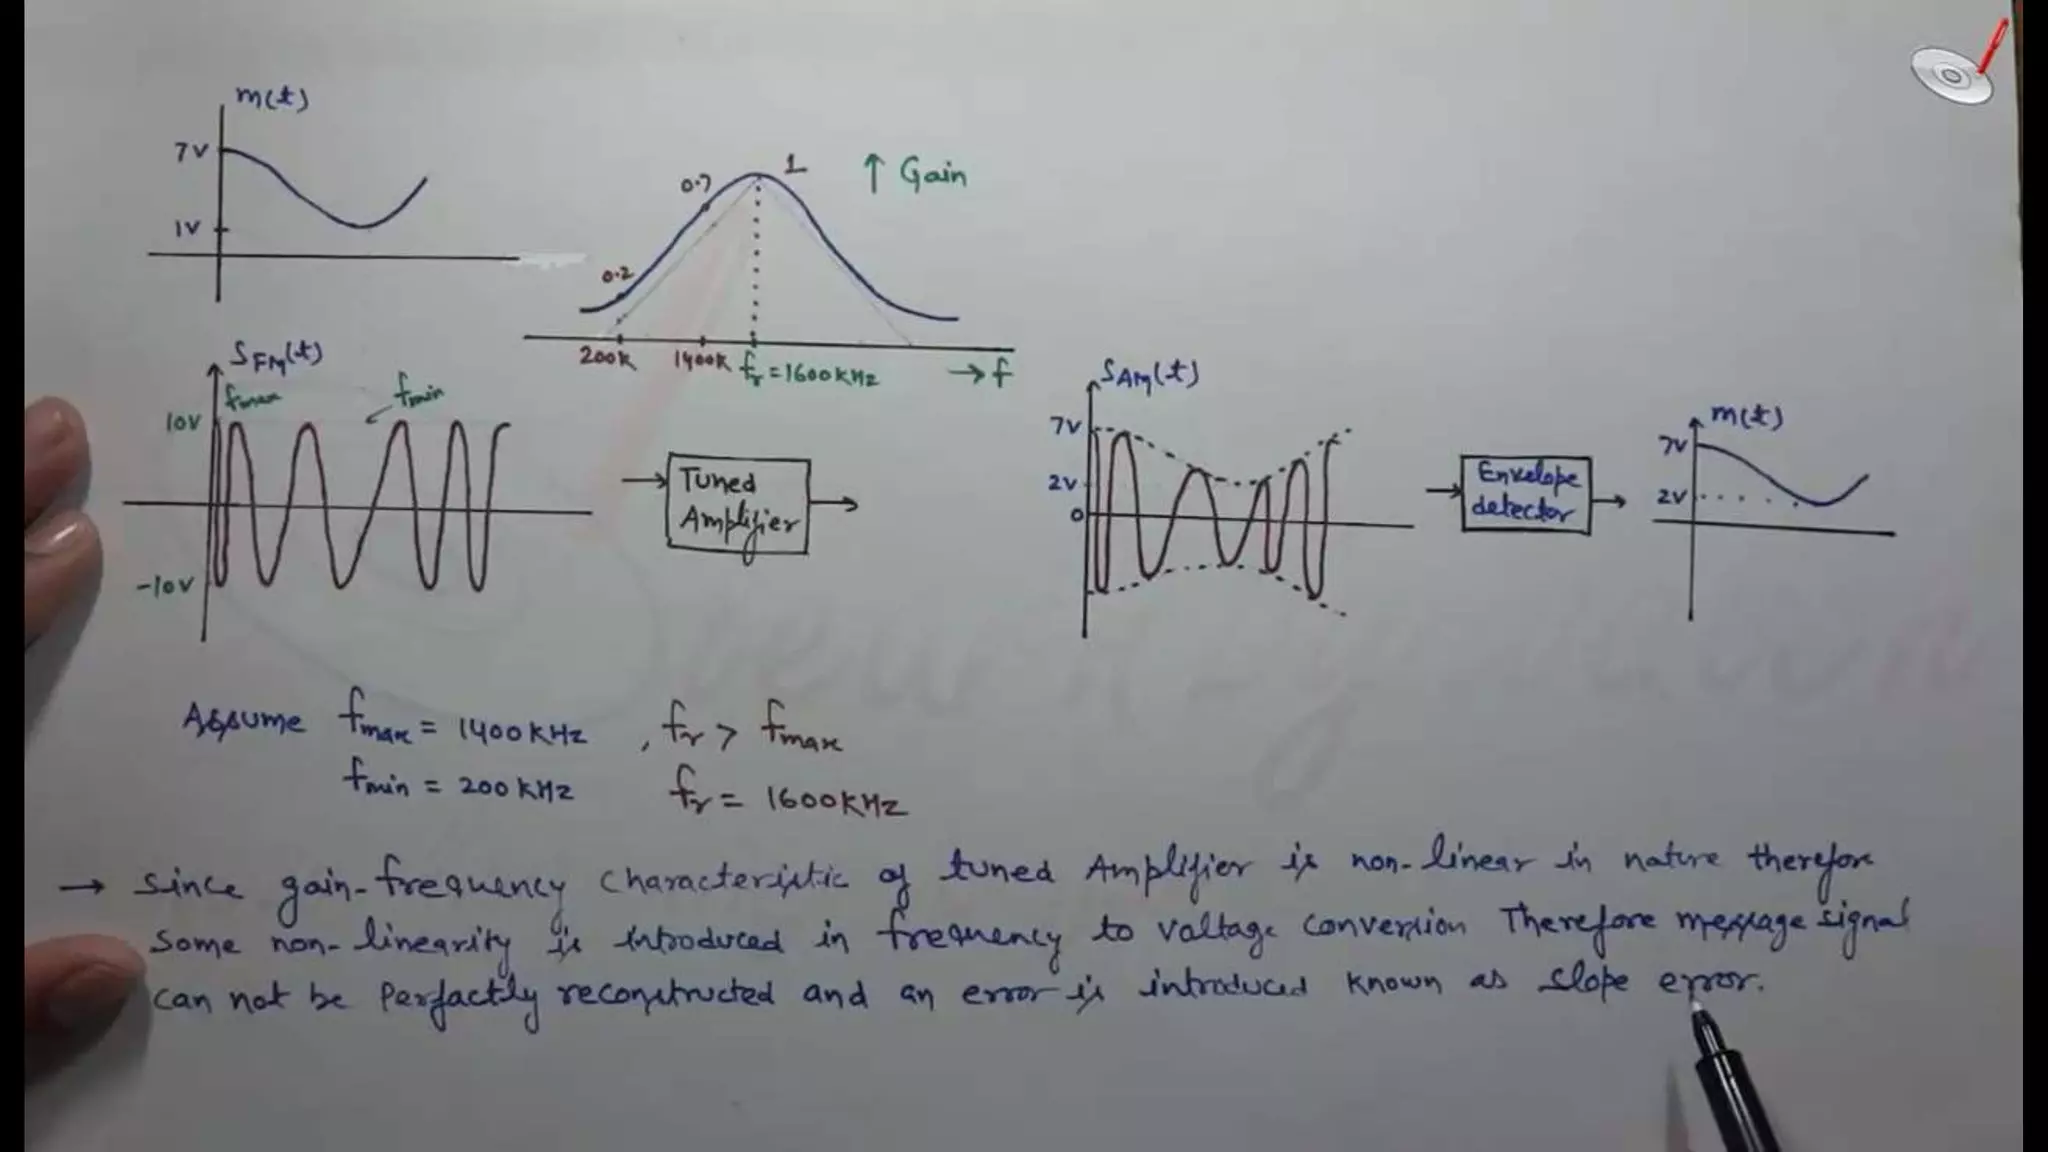 m(t)
7V
1V
↑ Gain
1
0.7
0.2
200K 1400K fr = 1600KHz → f
SFM(t)
fmax
fmin
10V
-10V
Tuned
Amplifier
SAM(t)
7V
2V
0
Envelope
detector
m(t)
7V
2V
Assume fmax = 1400KHz , fr > fmax
fmin = 200KHz fr = 1600KHz
→ Since gain-frequency characteristic of tuned Amplifier is non-linear in nature therefore
some non-linearity is introduced in frequency to voltage conversion Therefore message signal
can not be Perfactly reconstructed and an error is introduced known as slope error.